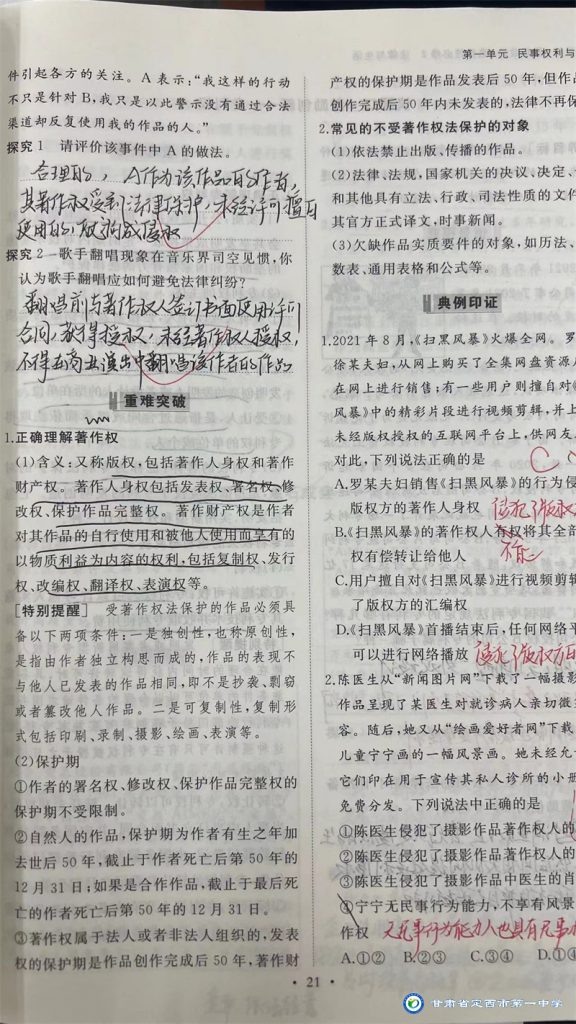 第一单元　民事权利与
件引起各方的关注。A 表示：“我这样的行动
不只是针对 B，我只是以此警示没有通过合法
渠道却反复使用我的作品的人。”
探究 1　请评价该事件中 A 的做法。
合理的，A作为该作品的作者，
其著作权受到法律保护，未经许可擅自
使用的，既构成侵权
探究 2　歌手翻唱现象在音乐界司空见惯，你
认为歌手翻唱应如何避免法律纠纷？
翻唱前与著作权人签订书面使用许可
合同，获得授权，未经著作权人授权，
不得在商业演出中翻唱该作者的作品
重难突破
1.正确理解著作权
(1)含义：又称版权，包括著作人身权和著作
财产权。著作人身权包括发表权、署名权、修
改权、保护作品完整权。著作财产权是作者
对其作品的自行使用和被他人使用而享有的
以物质利益为内容的权利，包括复制权、发行
权、改编权、翻译权、表演权等。
[特别提醒]　受著作权法保护的作品必须具
备以下两项条件：一是独创性，也称原创性，
是指由作者独立构思而成的，作品的表现不
与他人已发表的作品相同，即不是抄袭、剽窃
或者篡改他人作品。二是可复制性，复制形
式包括印刷、录制、摄影、绘画、表演等。
(2)保护期
①作者的署名权、修改权、保护作品完整权的
保护期不受限制。
②自然人的作品，保护期为作者有生之年加
去世后 50 年，截止于作者死亡后第 50 年的
12 月 31 日；如果是合作作品，截止于最后死
亡的作者死亡后第 50 年的 12 月 31 日。
③著作权属于法人或者非法人组织的，发表
权的保护期是作品创作完成后 50 年，著作财
产权的保护期是作品发表后 50 年，但作品
创作完成后 50 年内未发表的，法律不再保
2.常见的不受著作权法保护的对象
(1)依法禁止出版、传播的作品。
(2)法律、法规，国家机关的决议、决定、
和其他具有立法、行政、司法性质的文件
其官方正式译文，时事新闻。
(3)欠缺作品实质要件的对象，如历法、
数表、通用表格和公式等。
典例印证
1.2021 年 8 月，《扫黑风暴》火爆全网。罗
徐某夫妇，从网上购买了全集网盘资源
在网上进行销售；有一些用户则擅自对《
风暴》中的精彩片段进行视频剪辑，并上
未经版权授权的互联网平台上，供网友
对此，下列说法正确的是
C
A.罗某夫妇销售《扫黑风暴》的行为侵
版权方的著作人身权
侵犯了版权
B.《扫黑风暴》的著作权人有权将其全部
权有偿转让给他人
不能
C.用户擅自对《扫黑风暴》进行视频剪辑
了版权方的汇编权
D.《扫黑风暴》首播结束后，任何网络平
可以进行网络播放
侵犯了版权方的
2.陈医生从“新闻图片网”下载了一幅摄影
作品呈现了某医生对就诊病人亲切微
容。随后，她又从“绘画爱好者网”下载
儿童宁宁画的一幅风景画。她未经允
它们印在用于宣传其私人诊所的小册
免费分发。下列说法中正确的是
①陈医生侵犯了摄影作品著作权人的
②陈医生侵犯了摄影作品著作权人的
③陈医生侵犯了摄影作品中医生的肖
④宁宁无民事行为能力，不享有风景
作权
无民事行为能力人也具有民事
A.①②　B.②③　C.③④　D.①④
21
甘肃省定西市第一中学